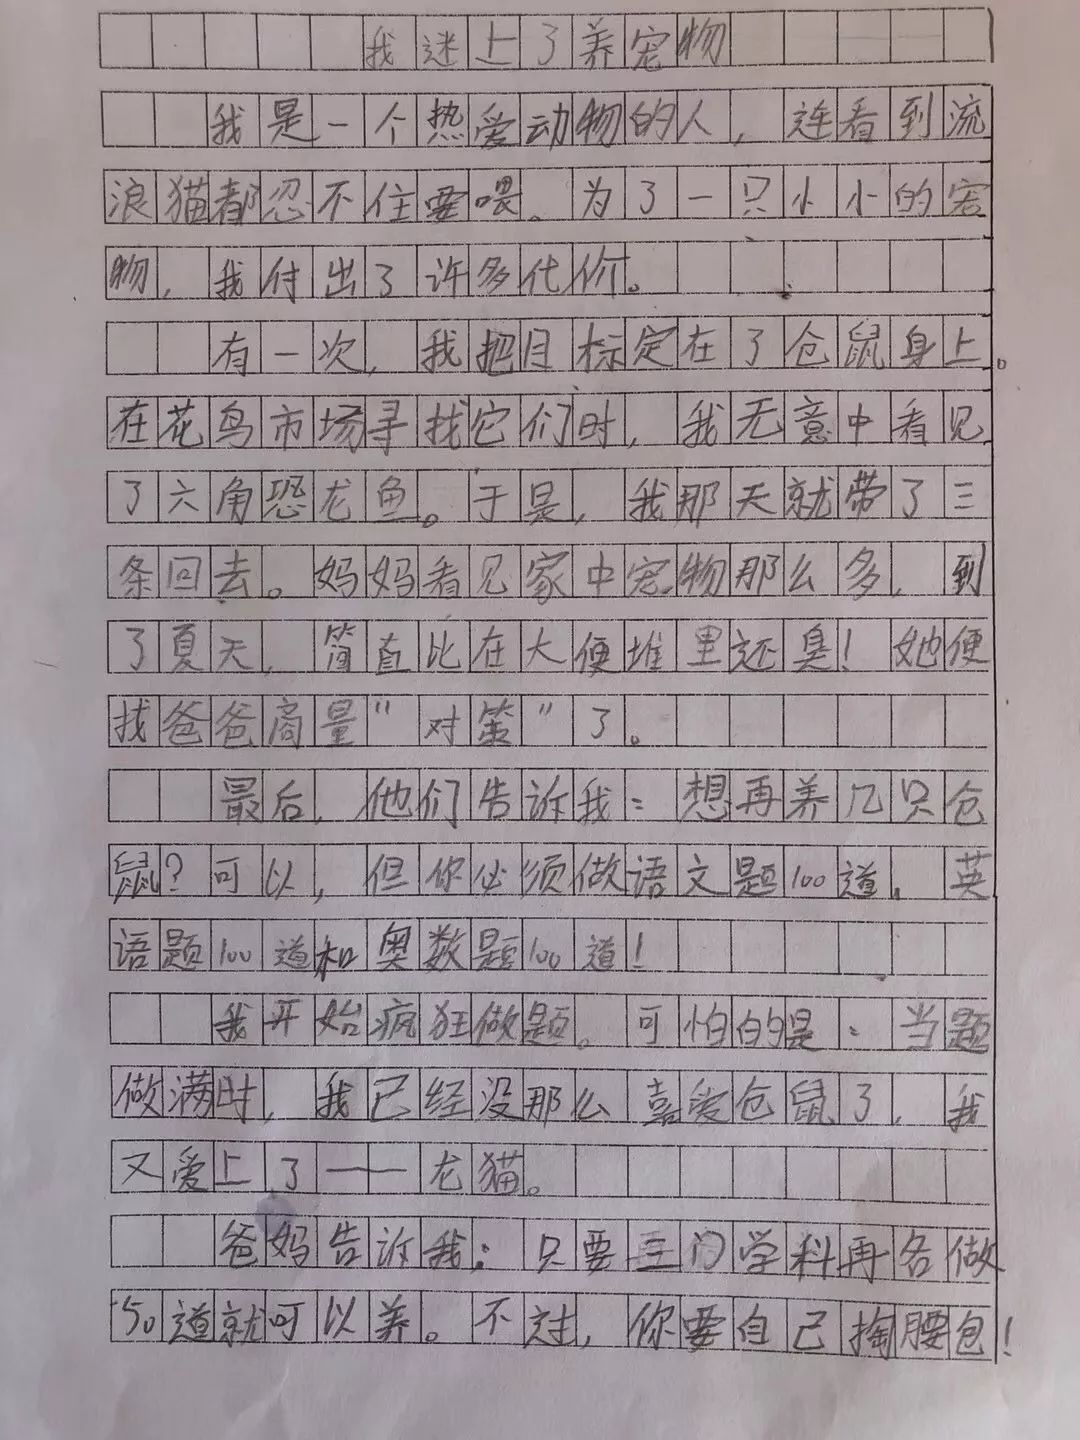 我迷上了养宠物
我是一个热爱动物的人，连看到流
浪猫都忍不住要喂。为了一只小小的宠
物，我付出了许多代价。
有一次，我把目标定在了仓鼠身上。
在花鸟市场寻找它们时，我无意中看见
了六角恐龙鱼。于是，我那天就带了三
条回去。妈妈看见家中宠物那么多，到
了夏天，简直比在大便堆里还臭！她便
找爸爸商量“对策”了。
最后，他们告诉我：想再养几只仓
鼠？可以，但你必须做语文题100道，英
语题100道和奥数题100道！
我开始疯狂做题。可怕的是：当题
做满时，我已经没那么喜爱仓鼠了，我
又爱上了——龙猫。
爸妈告诉我：只要三门学科再各做
50道就可以养。不过，你要自己掏腰包！